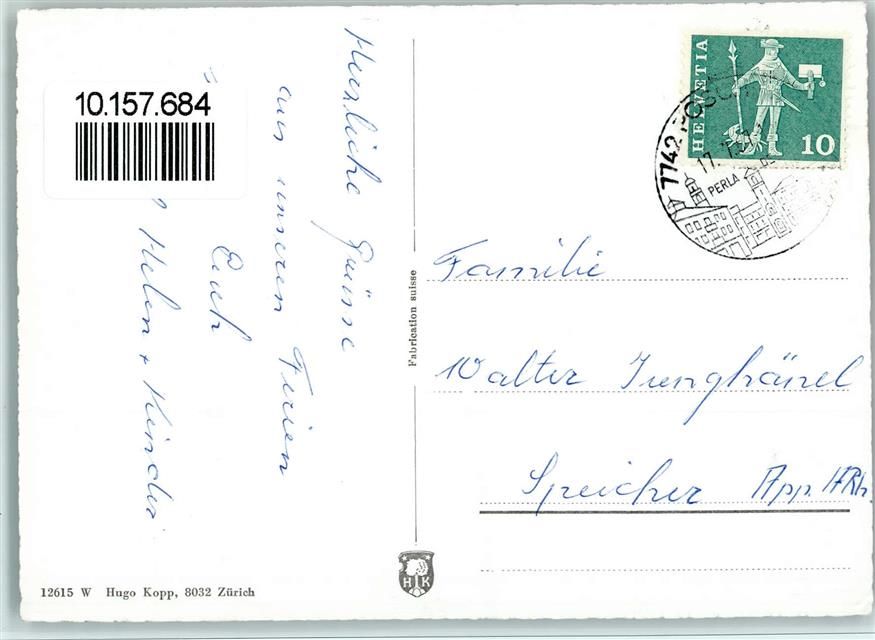 10.157.684
Herzliche Grüsse
aus unseren Ferien
Euch
Helen + Kinder
Fabrication suisse
HELVETIA
10
7742 POSCHIAVO
17. 7.
PERLA
Familie
Walter Junghänel
Speicher App. A/Rh.
H K
12615 W Hugo Kopp, 8032 Zürich